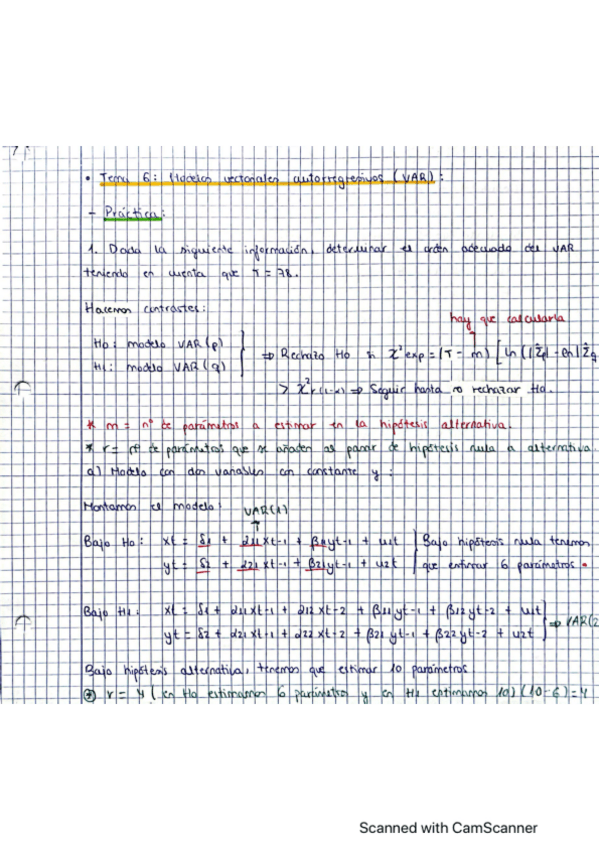 7
• Tema 6: Modelos vectoriales autorregresivos (VAR):
- Práctica:
1. Dada la siguiente información, determinar el orden adecuado del VAR
teniendo en cuenta que T = 78.
Hacemos contrastes:
hay que calcularla
Ho: modelo VAR (p)
H1: modelo VAR (q)
⇒ Rechazo Ho si χ²exp = (T - m) [ln (|Σ̂p| - ln|Σ̂q
> χ²r(1-α) ⇒ Seguir hasta no rechazar Ho.
* m = nº de parámetros a estimar en la hipótesis alternativa.
* r = nº de parámetros que se añaden al pasar de hipótesis nula a alternativa
a) Modelo con dos variables con constante y:
Montamos el modelo: VAR(1)
Bajo Ho: xt = δ1 + α11xt-1 + β11yt-1 + u1t
yt = δ2 + α21xt-1 + β21yt-1 + u2t
Bajo hipótesis nula tenemos
que estimar 6 parámetros.
Bajo H1: xt = δ1 + α11xt-1 + α12xt-2 + β11yt-1 + β12yt-2 + u1t
yt = δ2 + α21xt-1 + α22xt-2 + β21yt-1 + β22yt-2 + u2t
⇒ VAR(2
Bajo hipótesis alternativa, tenemos que estimar 10 parámetros
r = 4 (en Ho estimamos 6 parámetros y en H1 estimamos 10) (10-6)=4
Scanned with CamScanner